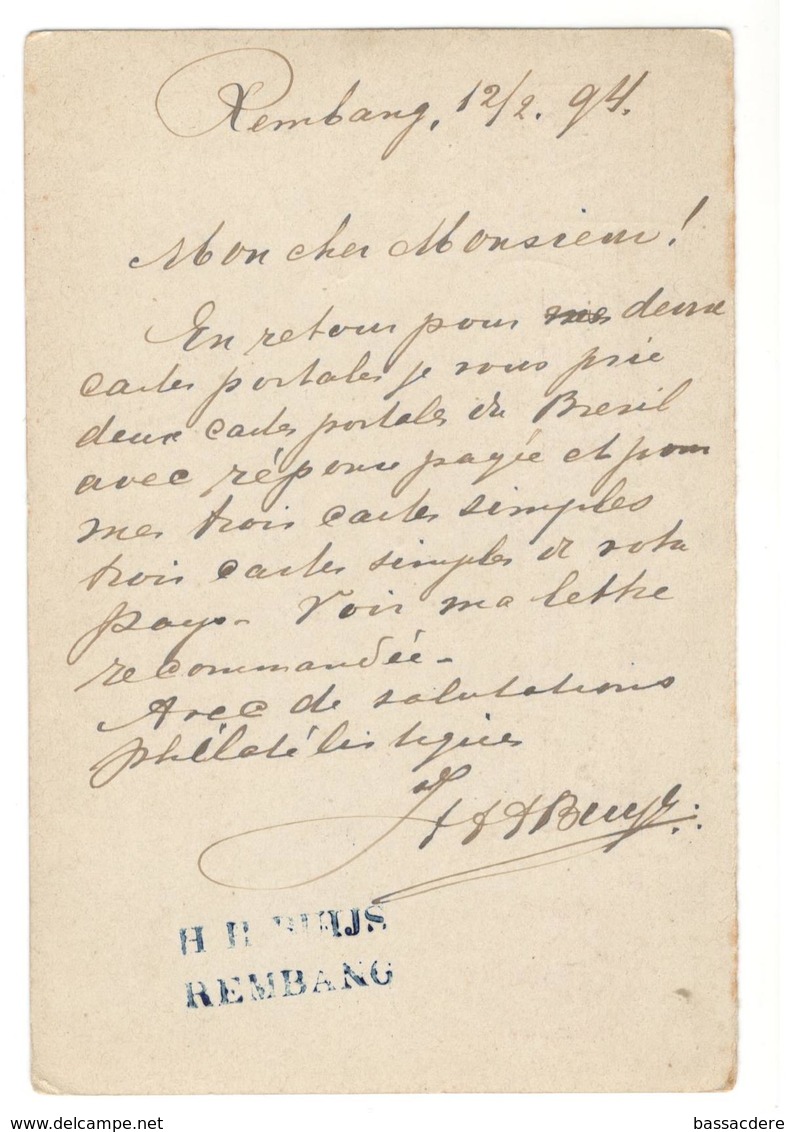 Rembang, 12/2. 94.
Mon cher Monsieur!
En retour pour mes deux
cartes postales je vous prie
deux cartes postales du Bresil
avec réponse payée et pour
mes trois cartes simples
trois cartes simples de votre
pays. Voir ma lettre
recommandée.
Avec de salutations
philatélistiques
HHBuijs
H H BUIJS
REMBANG
bassacdere